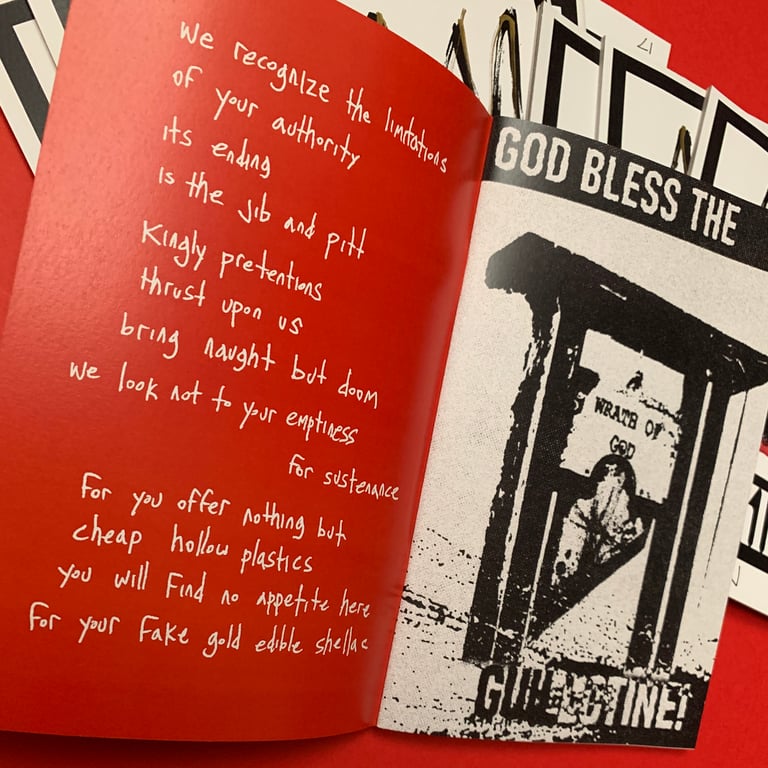 We recognize the limitations
of your authority
its ending
is the jib and pitt
Kingly pretentions
thrust upon us
bring naught but doom
we look not to your emptiness
for sustenance
For you offer nothing but
cheap hollow plastics
you will find no appetite here
for your fake gold edible shellac
GOD BLESS THE
WRATH OF
GOD
GUILLOTINE!
17